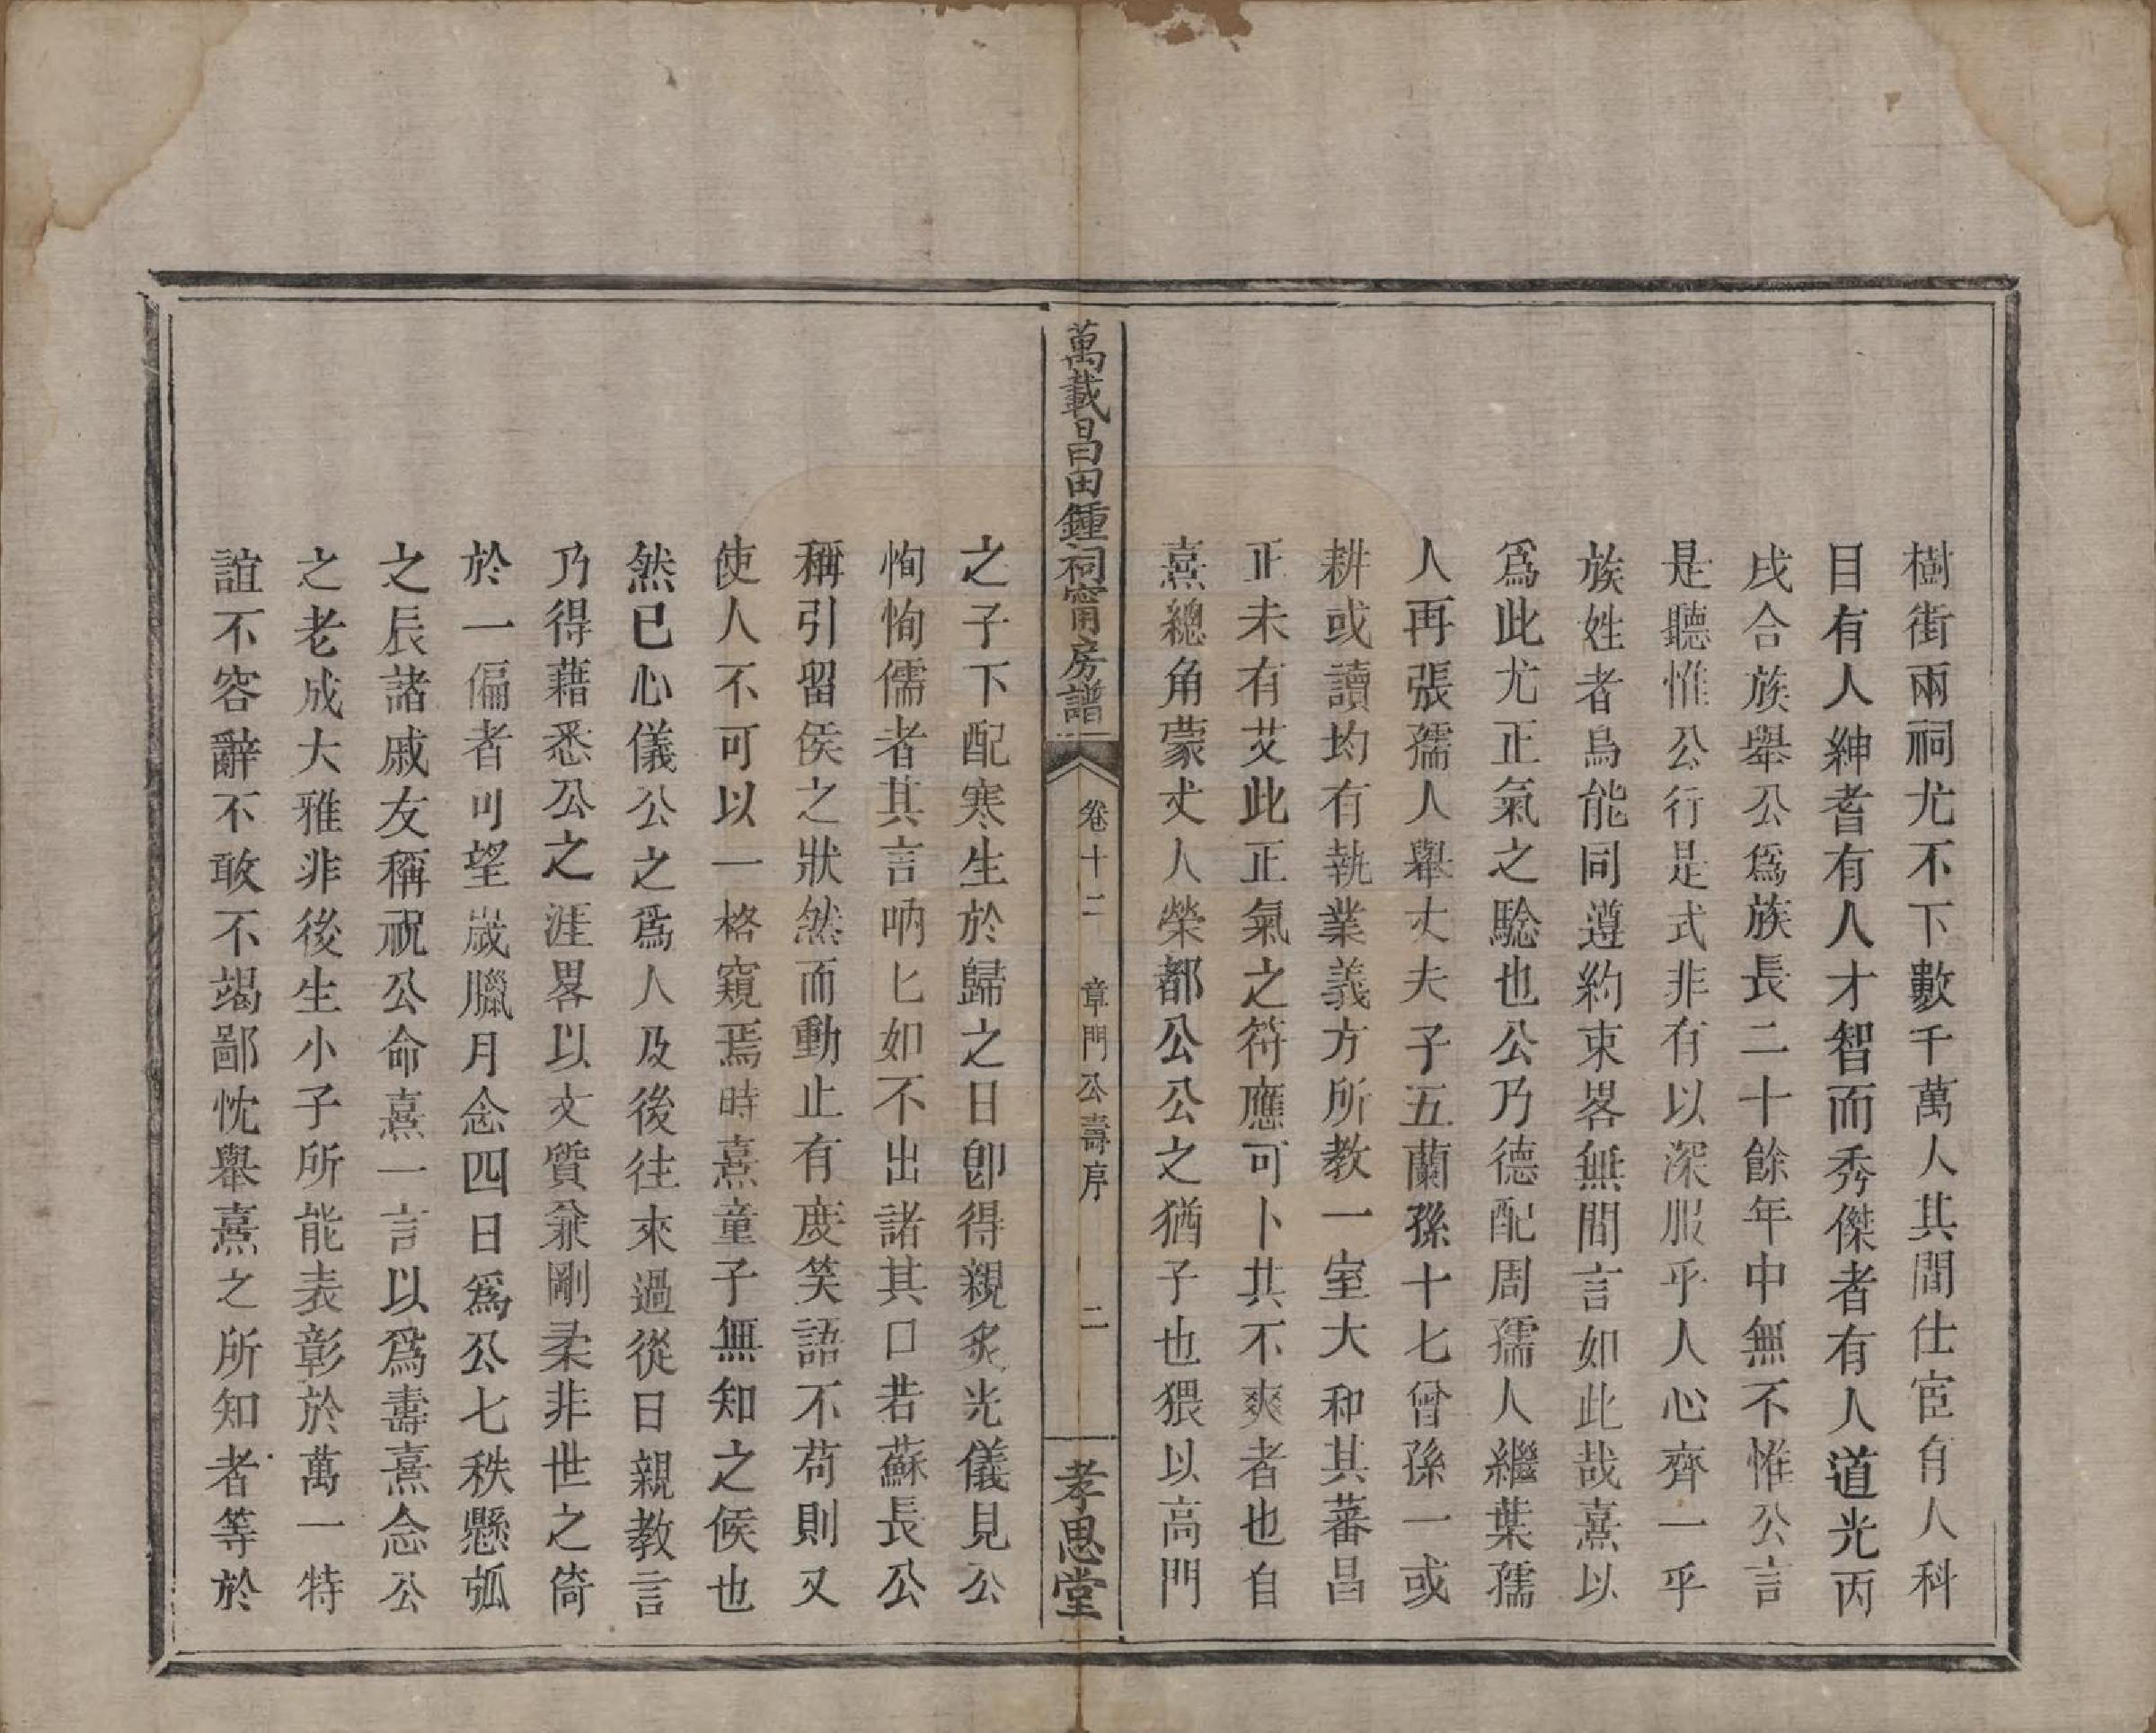 樹街兩祠尤不下數千萬人其間仕宦有人科
目有人紳耆有人才智而秀傑者有人道光丙
戌合族舉公爲族長二十餘年中無不惟公言
是聽惟公行是式非有以深服乎人心齊一乎
族姓者烏能同遵約束畧無間言如此哉熹以
爲此尤正氣之騐也公乃德配周孺人繼葉孺
人再張孺人舉丈夫子五蘭孫十七曾孫一或
耕或讀均有執業義方所教一室大和其蕃昌
正未有艾此正氣之符應可卜其不爽者也自
熹總角蒙丈人榮都公公之猶子也猥以高門
萬載昌田鍾祠甯房譜
卷十二
章門公壽序
二
孝思堂
之子下配寒生於歸之日卽得親炙光儀見公
恂恂儒者其言吶匕如不出諸其口若蘇長公
稱引留侯之狀然而動止有度笑語不苟則又
使人不可以一格窺焉時熹童子無知之候也
然已心儀公之爲人及後往來過從日親教言
乃得藉悉公之涯畧以文質兼剛柔非世之倚
於一偏者可望嵗臘月念四日爲公七秩懸弧
之辰諸戚友稱祝公命熹一言以爲壽熹念公
之老成大雅非後生小子所能表彰於萬一特
誼不容辭不敢不竭鄙忱舉熹之所知者等於